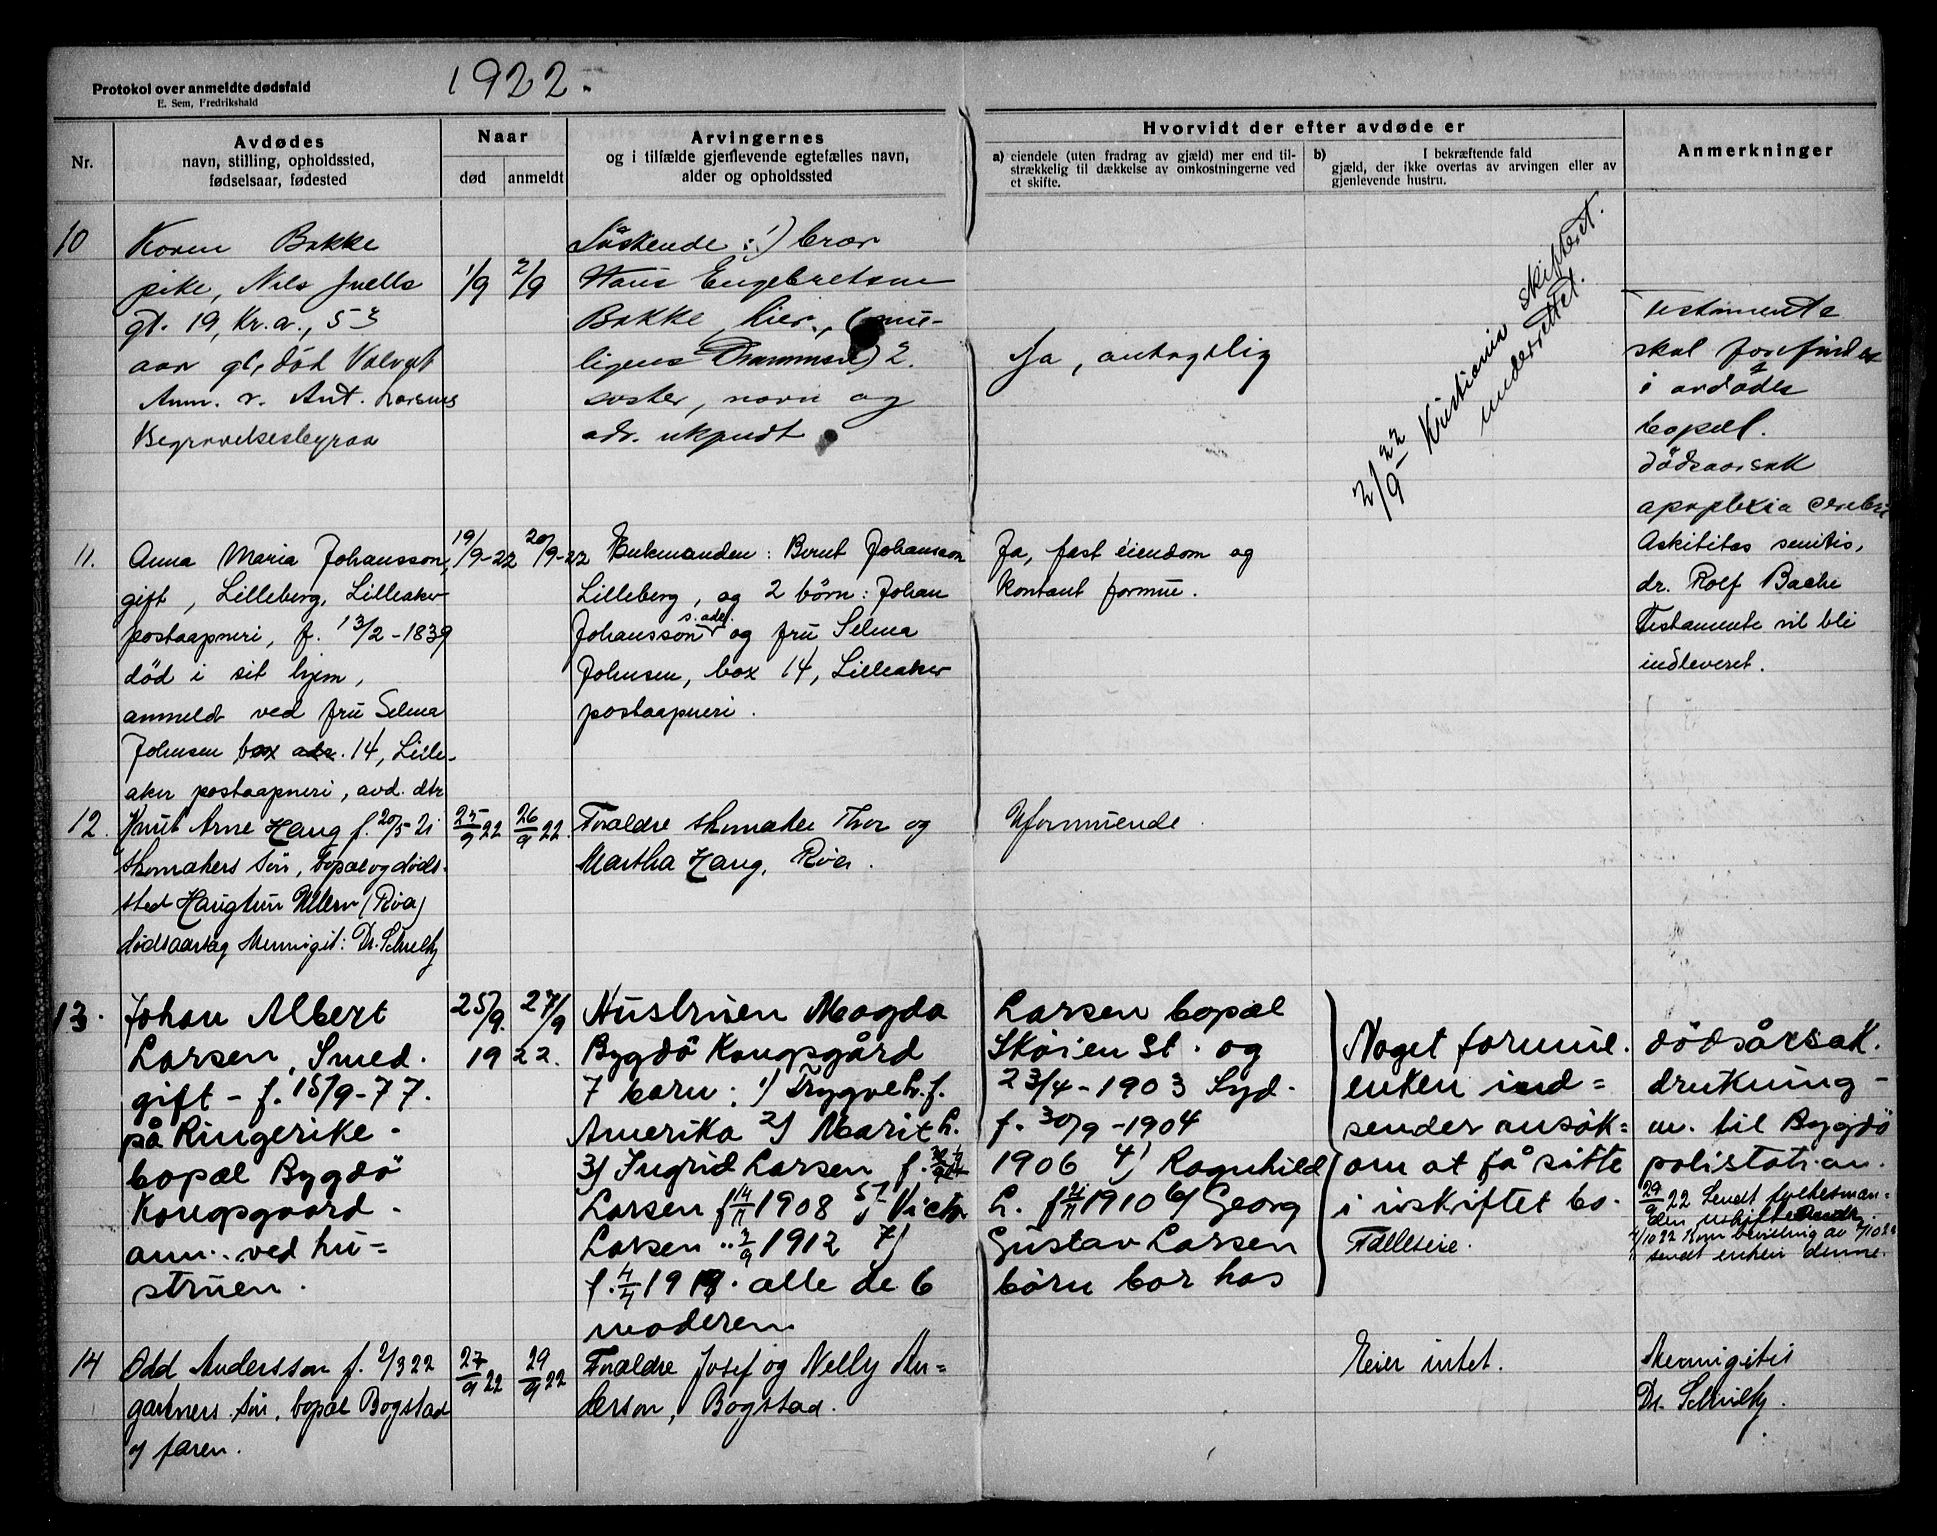 Protokol over anmeldte dødsfald
E. Sem, Fredrikshald
1922.
Nr.
Avdødes
navn, stilling, opholdssted,
fødselsaar, fødested
Naar
død
anmeldt
Arvingernes
og i tilfælde gjenlevende egtefælles navn,
alder og opholdssted
Hvorvidt der efter avdøde er
a) eiendele (uten fradrag av gjæld) mer end til-
strækkelig til dækkelse av omkostningerne ved
et skifte.
b) I bekræftende fald
gjæld, der ikke overtas av arvingen eller av
gjenlevende hustru.
Anmerkninger
10
Karen Bakke
pike, Nils Juells
gt. 19, Kr.a., 53
aar gl, død
Anm. v. Ant. Larsens
Begravelsesbyraa
1/9
2/9
Søskende: 1) bror
Hans Engebretsen
Bakke, hier, (mu-
ligens Drammen) 2.
søster, navn og
adr. ukjendt
Ja, antagelig
2/9 22 Kristiania skifteret
underrettet.
Testamente
skal forefindes
i avdødes
bopæl.
dødsaarsak
apoplexia cerebri
11.
Anna Maria Johansson,
gift, Lilleberg, Lilleaker
postaapneri, f. 13/2-1839
død i sit hjem,
anmeldt ved fru Selma
Johnsen box adr. 14, Lille-
aker postaapneri, avd. dtr
19/9-22
20/9-22
Enkemanden: Bernt Johansson
Lilleberg, og 2 børn: Johan
Johansson s. adr. og fru Selma
Johnsen, box 14, Lilleaker
postaapneri.
Ja, fast eiendom og
kontant formue.
senitis,
dr. Rolf Bache
Testamente vil bli
indleveret.
12.
Knut Arne Haug f. 20/5 21
skomakers søn, bopæl og døds-
sted Haugtun Ullern (Røa)
dødsaarsag Menningit: Dr. Schultz
25/9 22
26/9 22
Forældre skomaker Thor og
Martha Haug, Røa.
Uformuende.
13.
Johan Albert
Larsen, Smed.
gift - f. 15/9-77.
på Ringerike -
bopæl Bygdö
Kongsgaard -
anm. ved hu=
struen.
25/9
27/9
1922.
Hustruen Magda Larsen bopæl
Bygdö Kongsgård Skøien st. og
7 barn: 1) Trygve L. f. 23/4-1903 Syd-
Amerika 2) Marit L. f. 30/9-1904
3) Ingrid Larsen f. 1906 4) Ragnhild
Larsen f 14/11 1908 5) Victor L. f 21/11 1910 6) Georg
Larsen " 2/9 1912 7) Gustav Larsen
f. 4/4 1919. alle de 6 børn bor hos
moderen.
Noget formue.
enken ind=
sender ansøk=
om at få sitte
i uskiftet bo.
Fælleseie.
dödsårsak.
drukning -
m. til Bygdö
polistation.
29/9 22 Sendt
4/10 22 Kom bevilling av 2/10 22
sendt enken denne.
14
Odd Andersson f. 2/3 22
gartners søn, bopæl Bogstad
v/ faren.
27/9 22
29/9 22
Forældre Josef og Nelly An=
derson, Bogstad.
Eier intet.
Menigitis
Dr. Schultz.